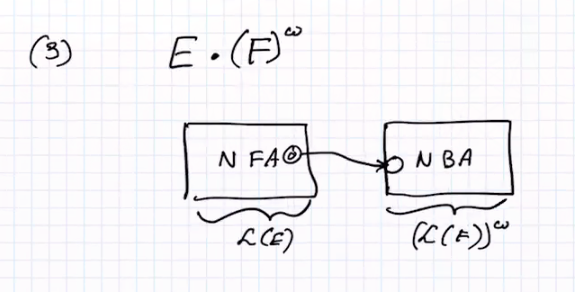 (3) E · (F)^ω
NFA NBA
L(E) (L(F))^ω